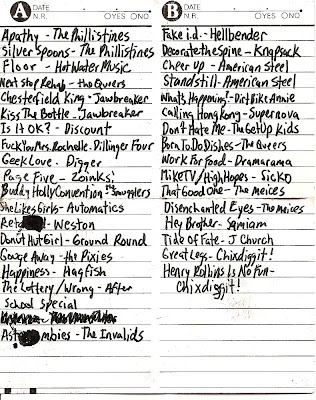 A DATE
N.R. ○YES ○NO
Apathy - The Phillistines
Silver Spoons - The Phillistines
Floor - Hot Water Music
Next Stop Rehab - the Queers
Chesterfield King - Jawbreaker
Kiss The Bottle - Jawbreaker
Is it OK? - Discount
Fuck You Mrs. Rochelle - Dillinger Four
Geek Love - Digger
Page Five - Zoinks!
Buddy Holly Convention - Smugglers
She Likes Girls - Automatics
- Weston
Donut Hut Girl - Ground Round
Gouge Away - the Pixies
Happiness - Hagfish
The Lottery/Wrong - After
School Special
Ast mbies - The Invalids
B DATE
N.R. ○YES ○NO
Fake i.d. - Hellbender
Decorate the spine - Knapsack
Cheer Up - American Steel
Standstill - American Steel
Whats Happening? - Dirt Bike Annie
Calling Hong Kong - Supernova
Don't Hate Me - The Get Up Kids
Born To Do Dishes - The Queers
Work For Food - Dramarama
Mike TV/High Hopes - Sicko
That Good One - The Meices
Disenchanted Eyes - The Meices
Hey Brother - Samiam
Tide Of Fate - J Church
Great Legs - Chixdiggit!
Henry Rollins Is No Fun -
Chixdiggit!